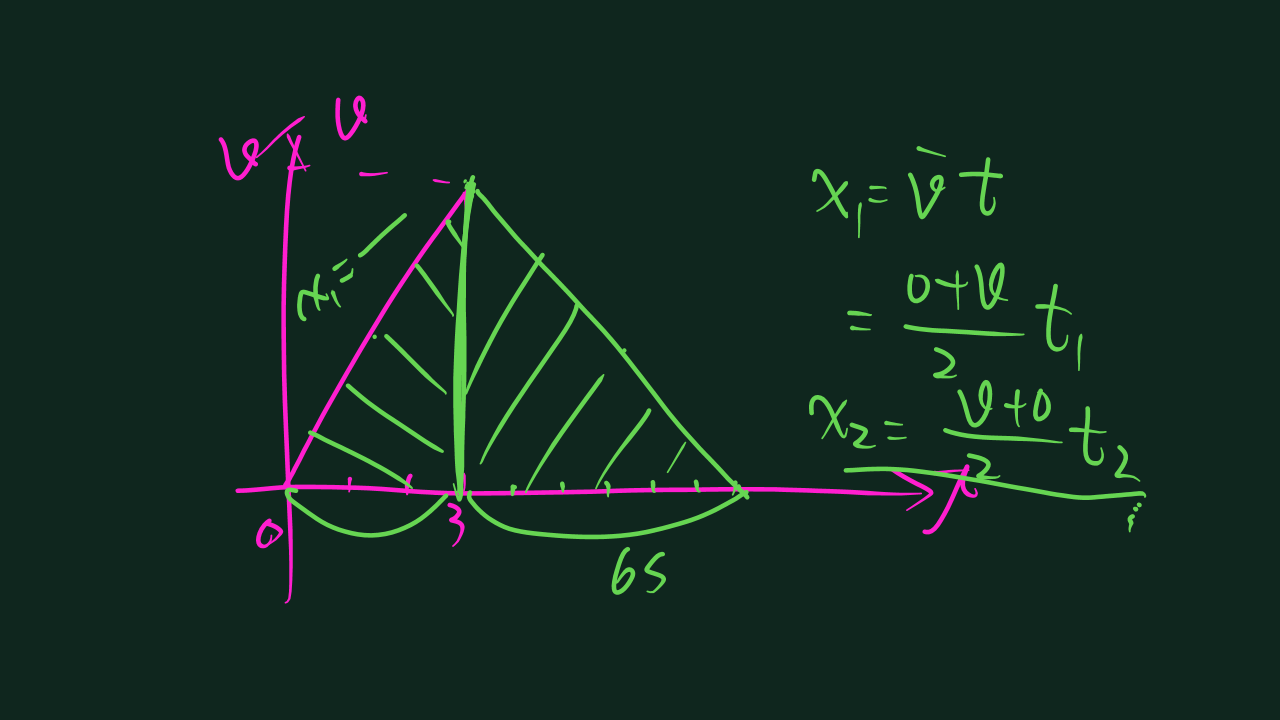 v
v
x₁=
0
3
6s
x₁ = v̄ t
= (0+v)/2 t₁
x₂ = (v+0)/2 t₂